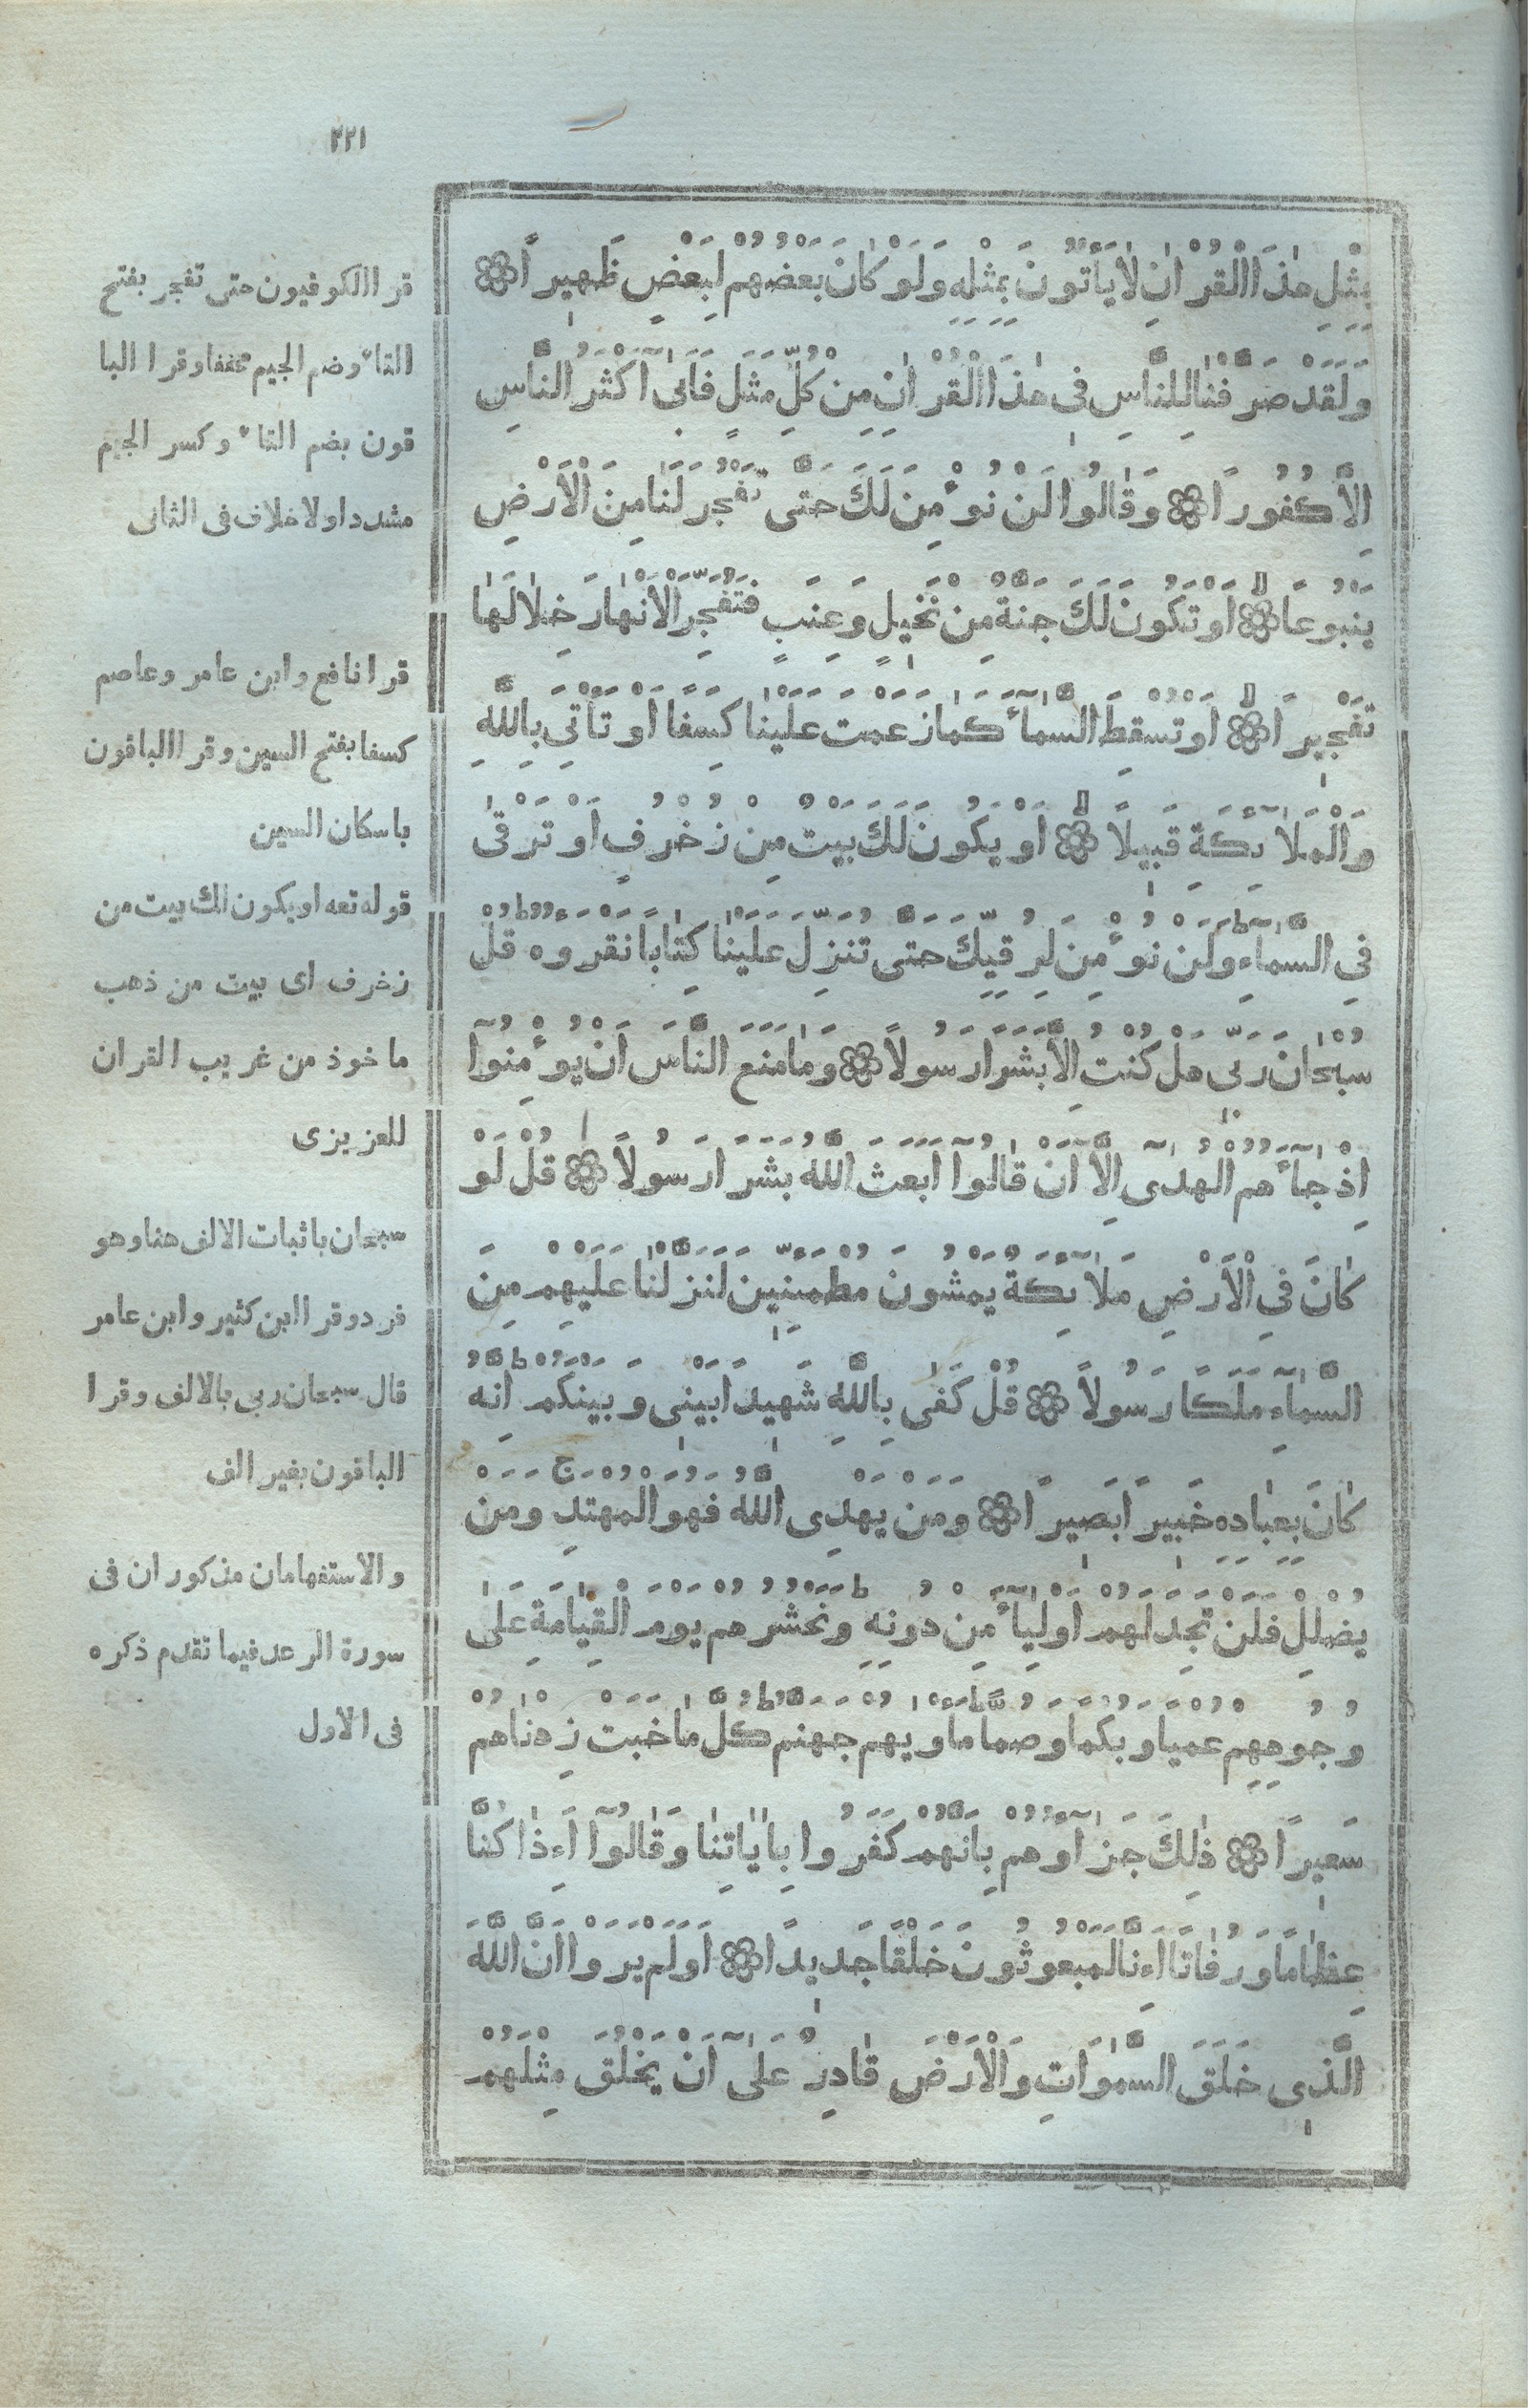 ٢٢١
بِمِثْلِ هٰذَا الْقُرْاٰنِ لَا يَأْتُونَ بِمِثْلِهِ وَلَوْ كَانَ بَعْضُهُمْ لِبَعْضٍ ظَهِيرًا ۞
وَلَقَدْ صَرَّفْنَا لِلنَّاسِ فِى هٰذَا الْقُرْاٰنِ مِنْ كُلِّ مَثَلٍ فَاَبٰىٓ اَكْثَرُ النَّاسِ
اِلَّا كُفُورًا ۞ وَقَالُوا لَنْ نُؤْمِنَ لَكَ حَتّٰى تَفْجُرَ لَنَا مِنَ الْاَرْضِ
يَنْبُوعًا ۞ لا اَوْ تَكُونَ لَكَ جَنَّةٌ مِنْ نَخِيلٍ وَعِنَبٍ فَتُفَجِّرَ الْاَنْهَارَ خِلَالَهَا
تَفْجِيرًا ۞ لا اَوْ تُسْقِطَ السَّمَآءَ كَمَا زَعَمْتَ عَلَيْنَا كِسَفًا اَوْ تَأْتِىَ بِاللّٰهِ
وَالْمَلَآئِكَةِ قَبِيلًا ۞ لا اَوْ يَكُونَ لَكَ بَيْتٌ مِنْ زُخْرُفٍ اَوْ تَرْقٰى
فِى السَّمَآءِ ط وَلَنْ نُؤْمِنَ لِرُقِيِّكَ حَتّٰى تُنَزِّلَ عَلَيْنَا كِتَابًا نَقْرَؤُهُ ط قُلْ
سُبْحَانَ رَبِّى هَلْ كُنْتُ اِلَّا بَشَرًا رَسُولًا ۞ وَمَا مَنَعَ النَّاسَ اَنْ يُؤْمِنُوٓا
اِذْ جَآءَهُمُ الْهُدٰىٓ اِلَّآ اَنْ قَالُوٓا اَبَعَثَ اللّٰهُ بَشَرًا رَسُولًا ۞ قُلْ لَوْ
كَانَ فِى الْاَرْضِ مَلَآئِكَةٌ يَمْشُونَ مُطْمَئِنِّينَ لَنَزَّلْنَا عَلَيْهِمْ مِنَ
السَّمَآءِ مَلَكًا رَسُولًا ۞ قُلْ كَفٰى بِاللّٰهِ شَهِيدًا بَيْنِى وَبَيْنَكُمْ ط اِنَّهُ
كَانَ بِعِبَادِهِ خَبِيرًا بَصِيرًا ۞ وَمَنْ يَهْدِى اللّٰهُ فَهُوَ الْمُهْتَدِ ج وَمَنْ
يُضْلِلْ فَلَنْ تَجِدَ لَهُمْ اَوْلِيَآءَ مِنْ دُونِهِ ط وَنَحْشُرُهُمْ يَوْمَ الْقِيَامَةِ عَلٰى
وُجُوهِهِمْ عُمْيًا وَبُكْمًا وَصُمًّا ط مَأْوٰيهُمْ جَهَنَّمُ ط كُلَّمَا خَبَتْ زِدْنَاهُمْ
سَعِيرًا ۞ ذٰلِكَ جَزَآؤُهُمْ بِاَنَّهُمْ كَفَرُوا بِاٰيَاتِنَا وَقَالُوٓا اَءِذَا كُنَّا
عِظَامًا وَرُفَاتًا اَءِنَّا لَمَبْعُوثُونَ خَلْقًا جَدِيدًا ۞ اَوَلَمْ يَرَوْا اَنَّ اللّٰهَ
الَّذِى خَلَقَ السَّمٰوَاتِ وَالْاَرْضَ قَادِرٌ عَلٰىٓ اَنْ يَخْلُقَ مِثْلَهُمْ
قرا الكوفيون حتى تفجر بفتح
التاء وضم الجيم مخففا وقرا البا
قون بضم التاء وكسر الجيم
مشددا ولا خلاف فى الثانى
قرا نافع وابن عامر وعاصم
كسفا بفتح السين وقرا الباقون
باسكان السين
قوله تعه او يكون لك بيت من
زخرف اى بيت من ذهب
ماخوذ من غريب القران
للعزيزى
سبحان باثبات الالف هنا وهو
فرد وقرا ابن كثير وابن عامر
قال سبحان ربى بالالف وقرا
الباقون بغير الف
والاستفهامان مذكوران فى
سورة الرعد فيما تقدم ذكره
فى الاول